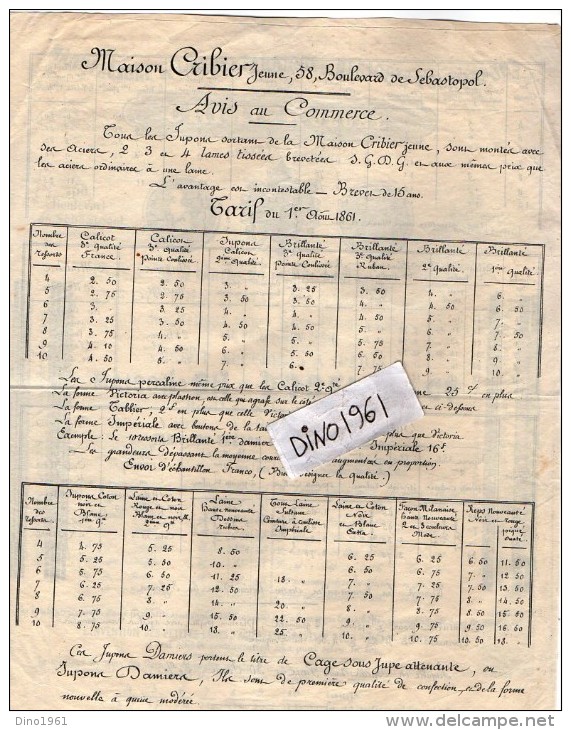 Maison Cribier Jeune, 58, Boulevard de Sébastopol.
Avis au Commerce.
Tous les Jupons sortant de la Maison Cribier jeune, sont montés avec
ses Aciers, 2 3 et 4 lames tissées brevetées S.G.D.G et aux mêmes prix que
les aciers ordinaires à une lame.
L'avantage est incontestable - Brevet de 15 ans.
Tarif du 1er Août 1861.
Nombre des ressorts | Calicot 3e qualité France. | Calicot 3e qualité Pointe Coulisse | Jupons Calicot 2ème Qualité. | Brillanté 3e qualité Pointe Coulisse | Brillanté 3e qualité Ruban. | Brillanté 2e qualité. | Brillanté 1ère Qualité.
4 2. 50 2. 50 3. " 3. 25 4. " 6. "
5 2. 75 2. 75 3. 50 3. 50 4. " 6. 50
6 3. " 3. " 4. 5. " 7. "
7 3. 25 3. 50 4. 50 4. 50 5. " 7. 50
8 3. 75 4. " 5. " 6. " 8. "
9 4. " 4. 50 7. " 9. "
10 4. 50 5. " 7. " 6. 9. " 10. "
Les Jupons percaline même prix que les Calicot 2e qté 25c en plus
La forme Victoria avec plastron, ou celle qui agrafe sur le côté
La forme Tablier, 2f en plus que celle Victo ci-dessous
La forme Impériale avec boutons de la tai plus que Victoria
Exemple: Le 10 ressorts Brillanté 1ère damier Impériale 16f.
Les grandeurs dépassant la moyenne augmentées en proportion.
Envoi d'échantillon Franco, ( désigner la Qualité.)
DINO1961
Nombre des ressorts | Jupons Coton noir et Blanc 1ère qté | Laine et Coton Rouge et noir Blanc et noir 2ème qté | Laine Haute nouveauté Dessous ruban | Tout Laine Impériale | Laine et Coton Noir et Blanc Extra. | Façon Milannise, haute Nouveauté 2 et 3 couleurs | Reps Nouveauté Noir et Rouge
4 4. 75 5. 25 8. 50 6. 25 6. 25 6. 50 11. 50
5 5. 25 5. 50 10. " 6. 50 6. 50 12. 50
6 5. 75 6. 50 11. 25 18. " 7. " 13. 50
7 6. 25 7. 25 12. 50 7. 50 14. 50
8 6. 75 8. " 14. " 20. " 8. " 7. 75 8. 50 15. 50
9 7. 75 9. " 15. 50 22. 50 9. " 8. 75 9. 50 16. 50
10 8. 75 10. " 18. " 25. " 10. " 9. 75 10. 18. "
Ces Jupons Damiers portent le titre de Cage sous Jupe attenante, ou
Jupons Damiers, Ils sont de première qualité de confection, et de la forme
nouvelle à queue modérée.
Dino1961
delcampe.net